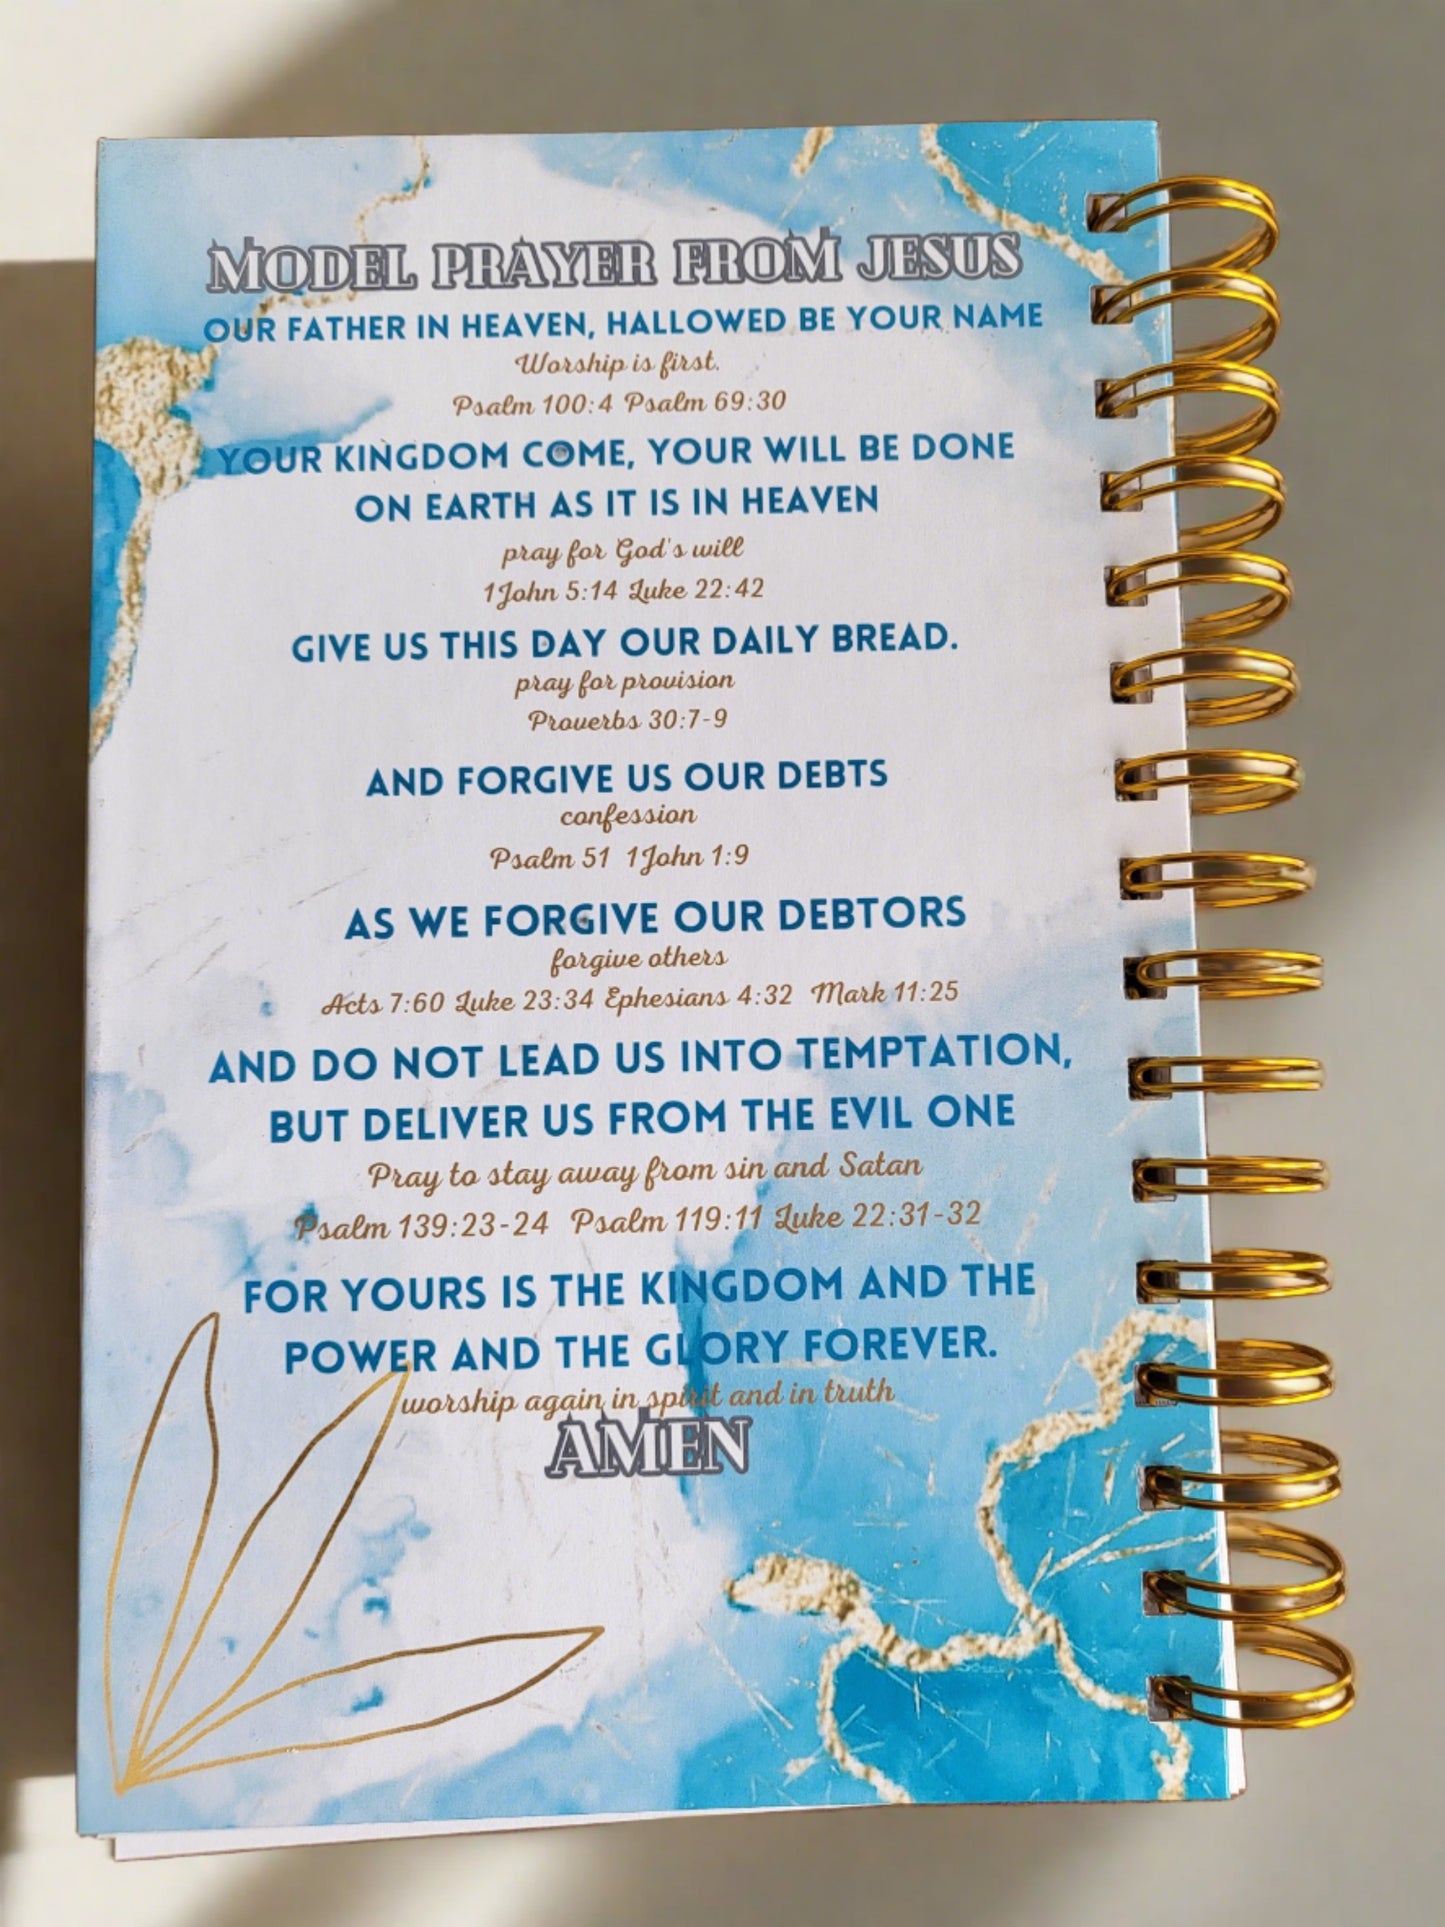 MODEL PRAYER FROM JESUS
OUR FATHER IN HEAVEN, HALLOWED BE YOUR NAME
Worship is first.
Psalm 100:4 Psalm 69:30
YOUR KINGDOM COME, YOUR WILL BE DONE
ON EARTH AS IT IS IN HEAVEN
pray for God's will
1John 5:14 Luke 22:42
GIVE US THIS DAY OUR DAILY BREAD.
pray for provision
Proverbs 30:7-9
AND FORGIVE US OUR DEBTS
confession
Psalm 51 1John 1:9
AS WE FORGIVE OUR DEBTORS
forgive others
Acts 7:60 Luke 23:34 Ephesians 4:32 Mark 11:25
AND DO NOT LEAD US INTO TEMPTATION,
BUT DELIVER US FROM THE EVIL ONE
Pray to stay away from sin and Satan
Psalm 139:23-24 Psalm 119:11 Luke 22:31-32
FOR YOURS IS THE KINGDOM AND THE
POWER AND THE GLORY FOREVER.
worship again in spirit and in truth
AMEN